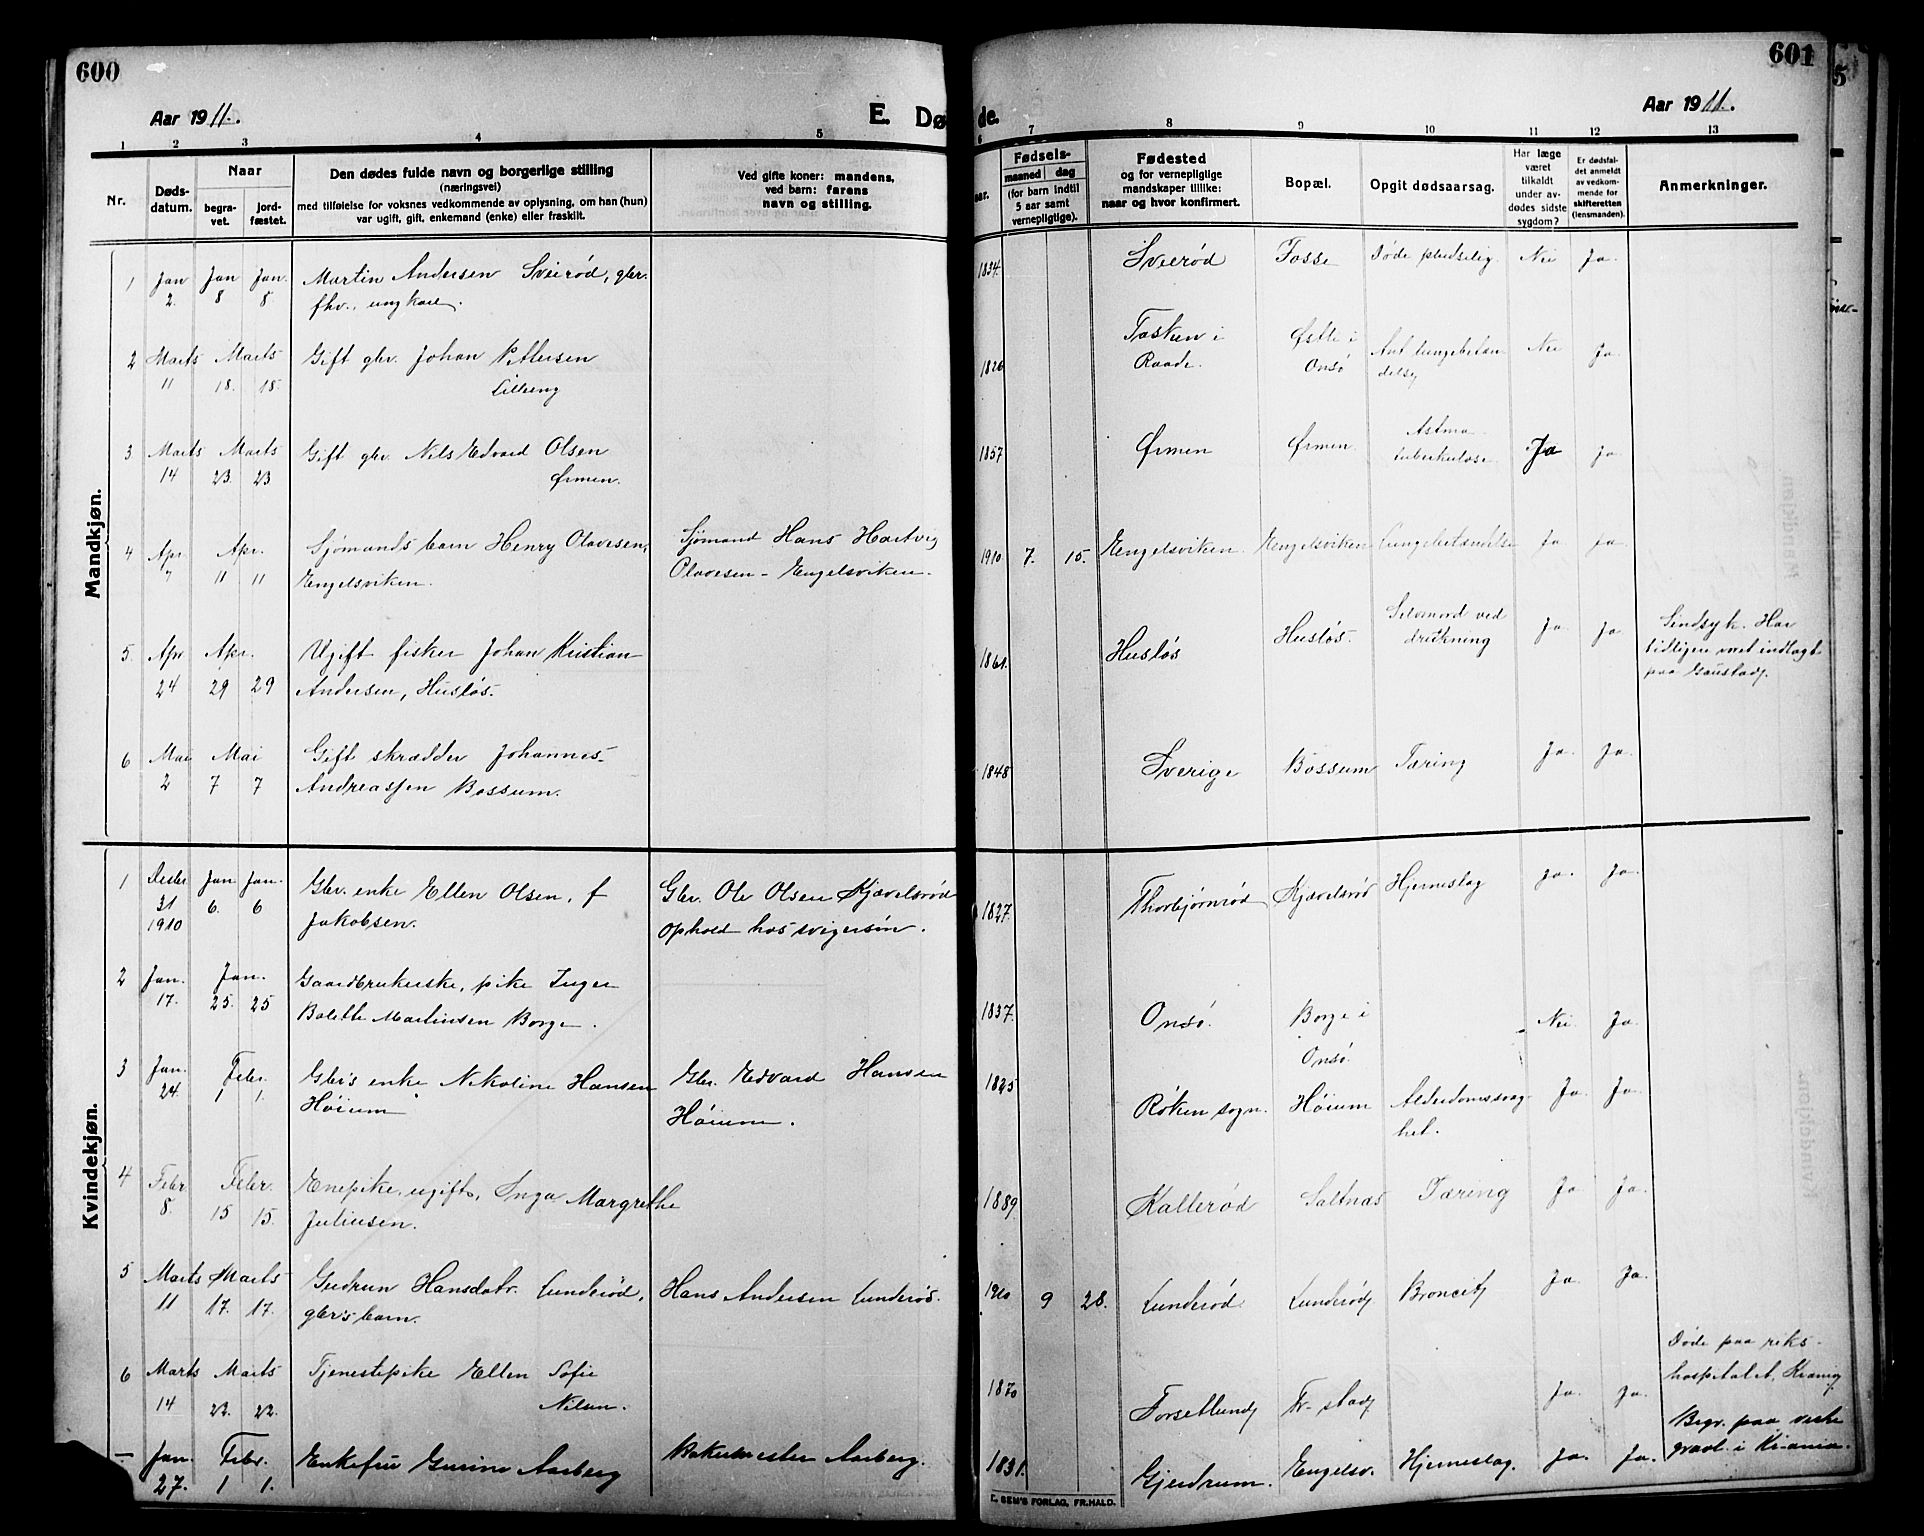 600
Aar 1911.
E. Dø
1 2 3 4 5
Nr.
Døds-
datum.
Naar
begra-
vet.
jord-
fæstet.
Den dødes fulde navn og borgerlige stilling
(næringsvei)
med tilføielse for voksnes vedkommende av oplysning, om han (hun)
var ugift, gift, enkemand (enke) eller fraskilt.
Ved gifte koner: mandens,
ved barn: farens
navn og stilling.
Mandkjøn.
1 Jan 2. Jan 8 Jan. 8 Martin Andersen Sveirød, gbr.
fhv., ungkarl.
2 Marts 11 Marts 18. 18. Gift gbr. Johan Pettersen
Lilleng
3 Marts 14 Marts 23. 23 Gift gbr. Nils Edvard Olsen
Ørmen.
4 Apr. 7 Apr. 11 11 Sjømands barn Henry Olavesen, Sjømand Hans Hartvig
Engelsviken. Olavesen - Engelsviken.
5. Apr 24 Apr. 29 29 Ugift fisker Johan Kristian
Andersen, Husløs.
6 Mai 2 Mai 7 7 Gift skrædder Johannes
Andreassen Bossum.
Kvindekjøn.
1 Desbr 31 1910 Jan 6. Jan. 6 Gbr. enke Ellen Olsen, f Gbr. Ole Olsen Kjævelsrød
Jakobsen. ophold hos svigersøn.
2 Jan. 17. Jan. 25. 25 Gaardbrukerske, pike Inger
Bolette Martinsen Borge.
3 Jan. 24. Febr. 1 1. Gbr's enke Nikoline Hansen Gbr. Edvard Hansen
Høium Høium.
4 Febr 8. Febr. 15 15. Enepike, ugift, Inga Margrethe
Juliusen.
5 Marts 11 Marts 17. 17. Gudrun Hansdatr. Lunderød, Hans Andersen Lunderød.
gbr's barn.
6 Marts 14 Marts 22. 22. Tjenestepike Ellen Sofie
Nilsen.
— Jan. 27. Febr. 1 1. Enkefru Gurine Aarberg Aarberg.
601
5
de.
Aar 1911.
6 7 8 9 10 11 12 13
aar.
Fødsels-
maaned dag
(for barn indtil
5 aar samt
vernepligtige).
Fødested
og for vernepligtige
mandskaper tillike:
naar og hvor konfirmert.
Bopæl.
Opgit dødsaarsag.
Har læge
været
tilkaldt
under av-
dødes sidste
sygdom?
Er dødsfal-
det anmeldt
av vedkom-
mende for
skifteretten
(lensmanden).
Anmerkninger.
1834. Sveirød Fosse Døde pludselig. Nei Ja.
1826 Tasken i Ørlle i Ant lungebetæn- Nei Ja
Raade. Onsø delse
1857 Ørmen Ørmen Astma Ja Ja
tuberkulose
1910 7. 15. Engelsviken. Engelsviken Lungebetændelse Ja Ja
1861. Husløs Husløs. Selvmord ved Ja. Ja Sindsyk. Har
drukning tidligere vært indlagt
paa Gaustad.
1848 Sverige Bossum Tæring Ja. Ja.
1827. Thorbjørnrød Kjævelsrød Hjerneslag Ja. Ja.
1837. Onsø. Borge i Nei. Ja.
Onsø.
1825 Røken sogn. Høium Alderdomssvag- Ja. Ja.
het.
1889 Kallerød Saltnæs Tæring Ja Ja.
1910 9 28. Lunderød. Lunderød Broncit Ja. Ja.
1870 Forsetlund Fr-stad Ja. Ja. Døde paa riks-
hospitalet, Kr.ania.
Begr. paa vestre
gravl. i Kr.ania.
1831. Gjerdrum. Engelsv. Hjerneslag. Ja. Ja.
E. SEM'S FORLAG, FR.HALD.